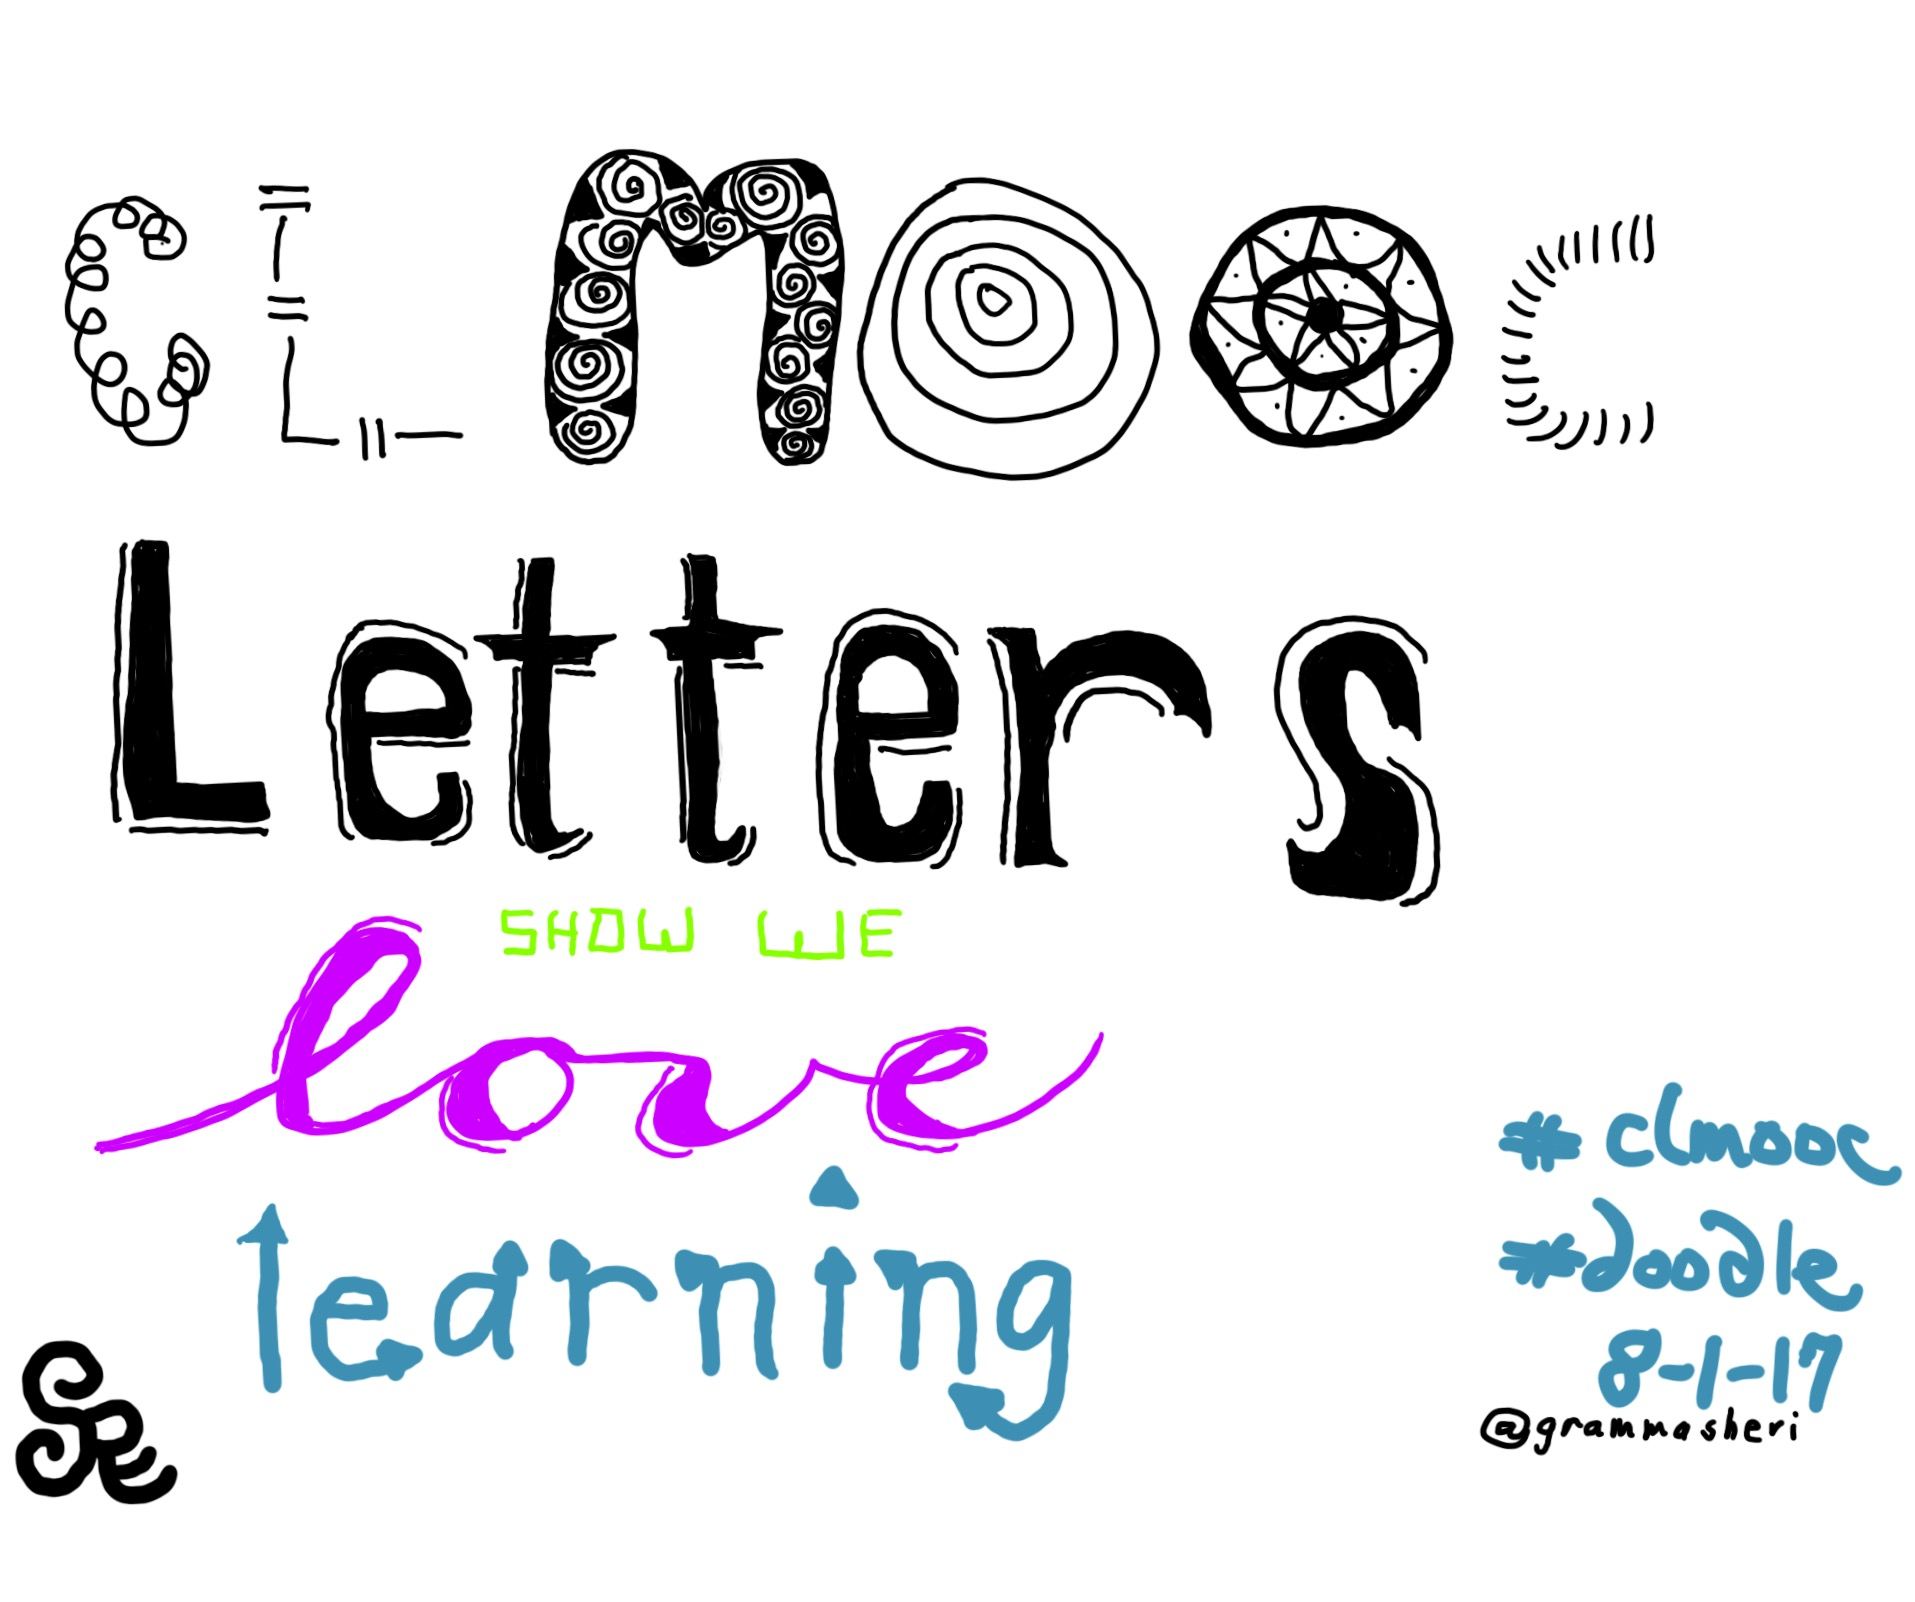 CLmooc
Letters
SHOW WE
love
learning
#clmooc
#doodle
8-1-17
@grammasheri